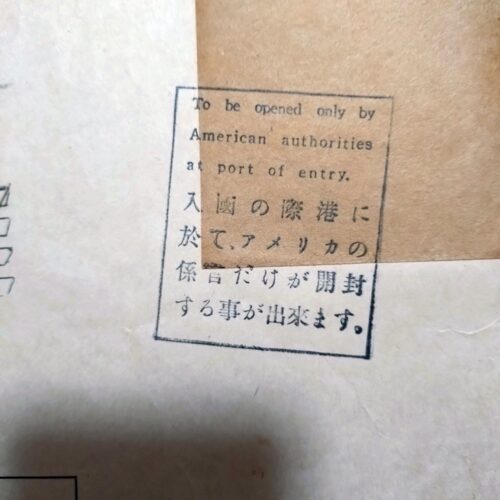 To be opened only by
American authorities
at port of entry.
入國の際港に
於て、アメリカの
係官だけが開封
する事が出來ます。